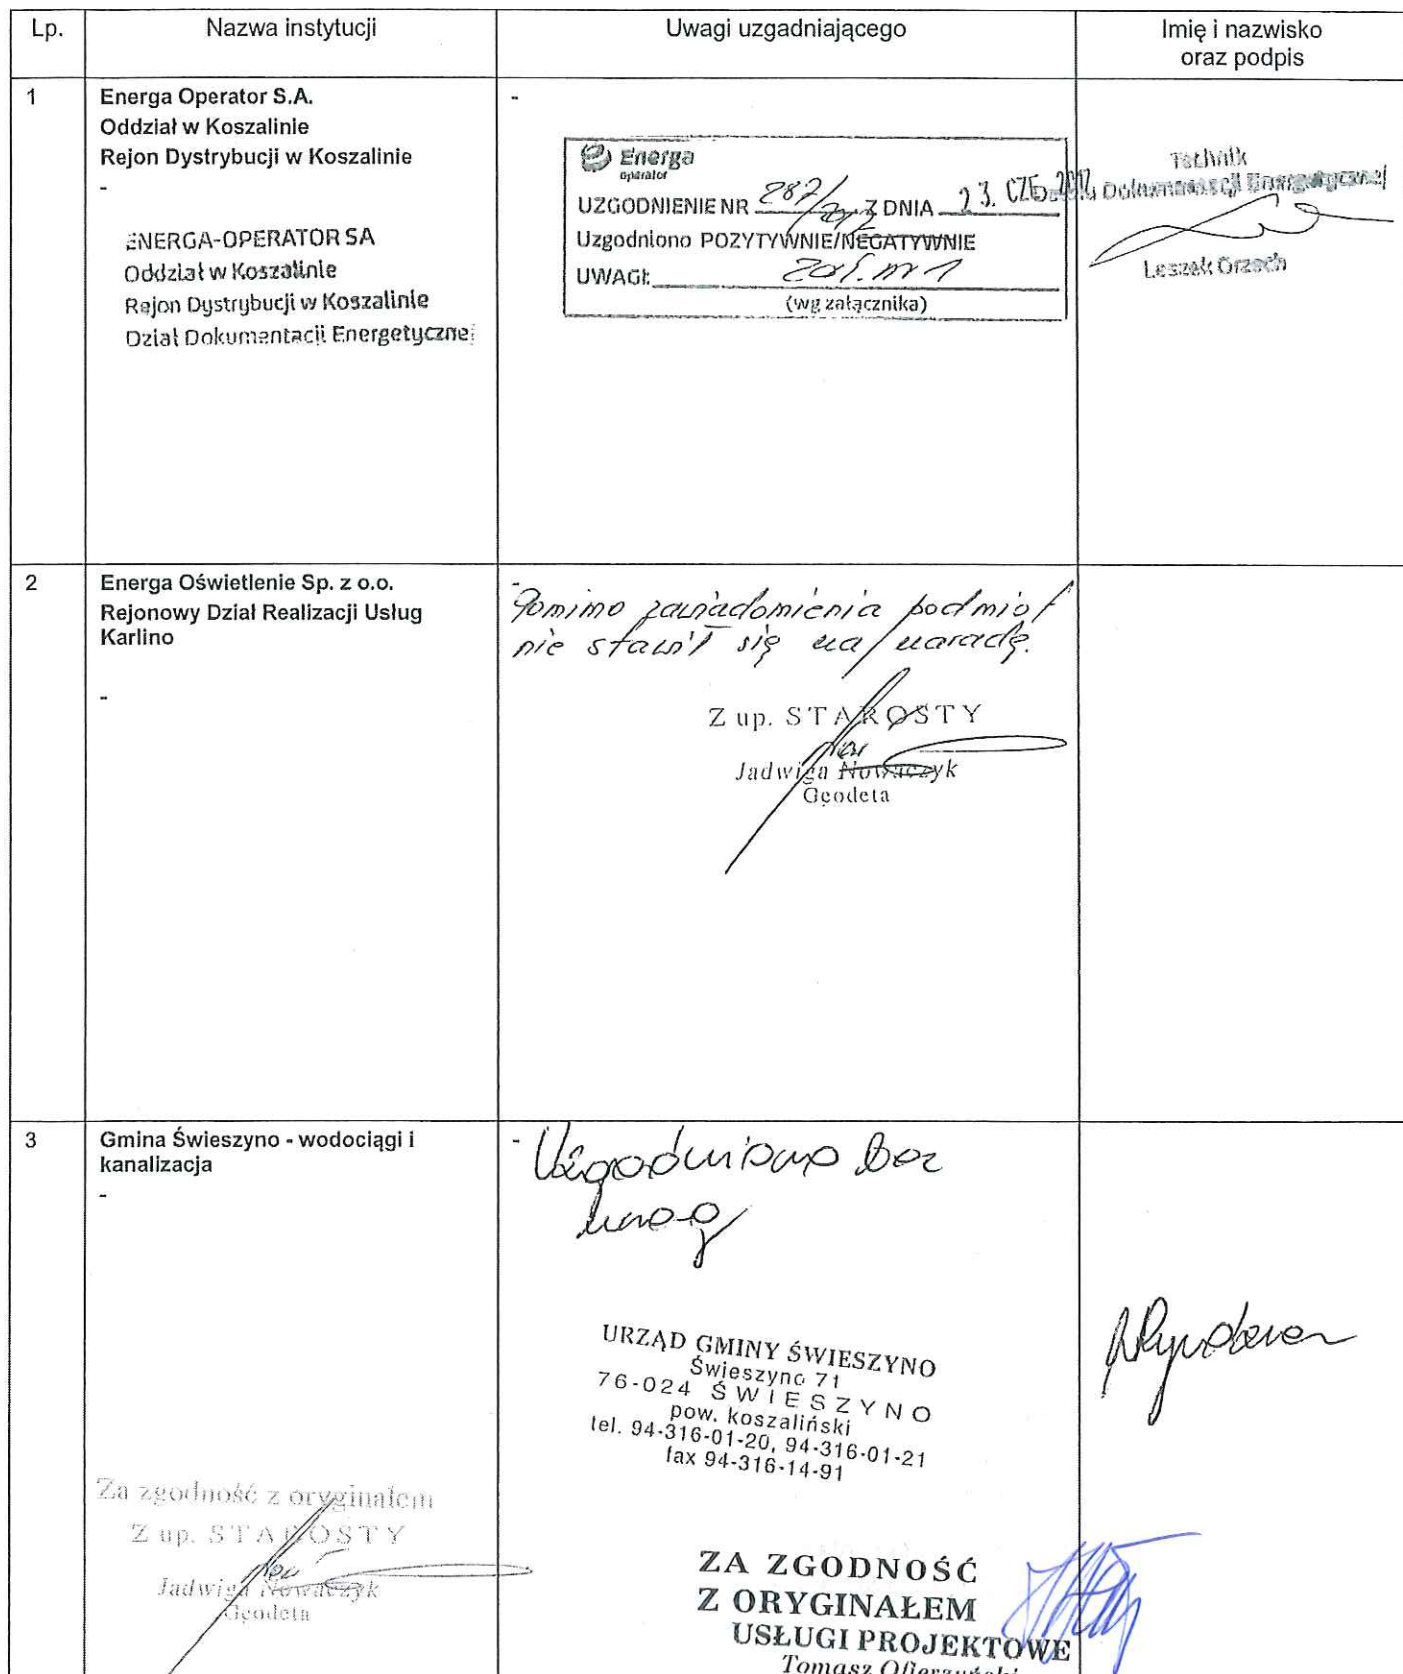 Lp.
Nazwa instytucji
Uwagi uzgadniającego
Imię i nazwisko
oraz podpis
1
Energa Operator S.A.
Oddział w Koszalinie
Rejon Dystrybucji w Koszalinie
-
ENERGA-OPERATOR SA
Oddział w Koszalinie
Rejon Dystrybucji w Koszalinie
Dział Dokumentacji Energetycznej
-
Energa
operator
UZGODNIENIE NR 287/2017 Z DNIA 23. CZE. 2017
Uzgodniono POZYTYWNIE/NEGATYWNIE
UWAGI: Zał. nr 1
(wg załącznika)
Technik
Dokumentacji Energetycznej
Leszek Grzech
2
Energa Oświetlenie Sp. z o.o.
Rejonowy Dział Realizacji Usług
Karlino
-
-
Pomimo zawiadomienia podmiot
nie stawił się na naradę.
Z up. STAROSTY
Jadwiga Nowaczyk
Geodeta
3
Gmina Świeszyno - wodociągi i
kanalizacja
-
-
Uzgodniono bez
uwag
URZĄD GMINY ŚWIESZYNO
Świeszyno 71
76-024 ŚWIESZYNO
pow. koszaliński
tel. 94-316-01-20, 94-316-01-21
fax 94-316-14-91
Za zgodność z oryginałem
Z up. STAROSTY
Jadwiga Nowaczyk
Geodeta
ZA ZGODNOŚĆ
Z ORYGINAŁEM
USŁUGI PROJEKTOWE
Tomasz